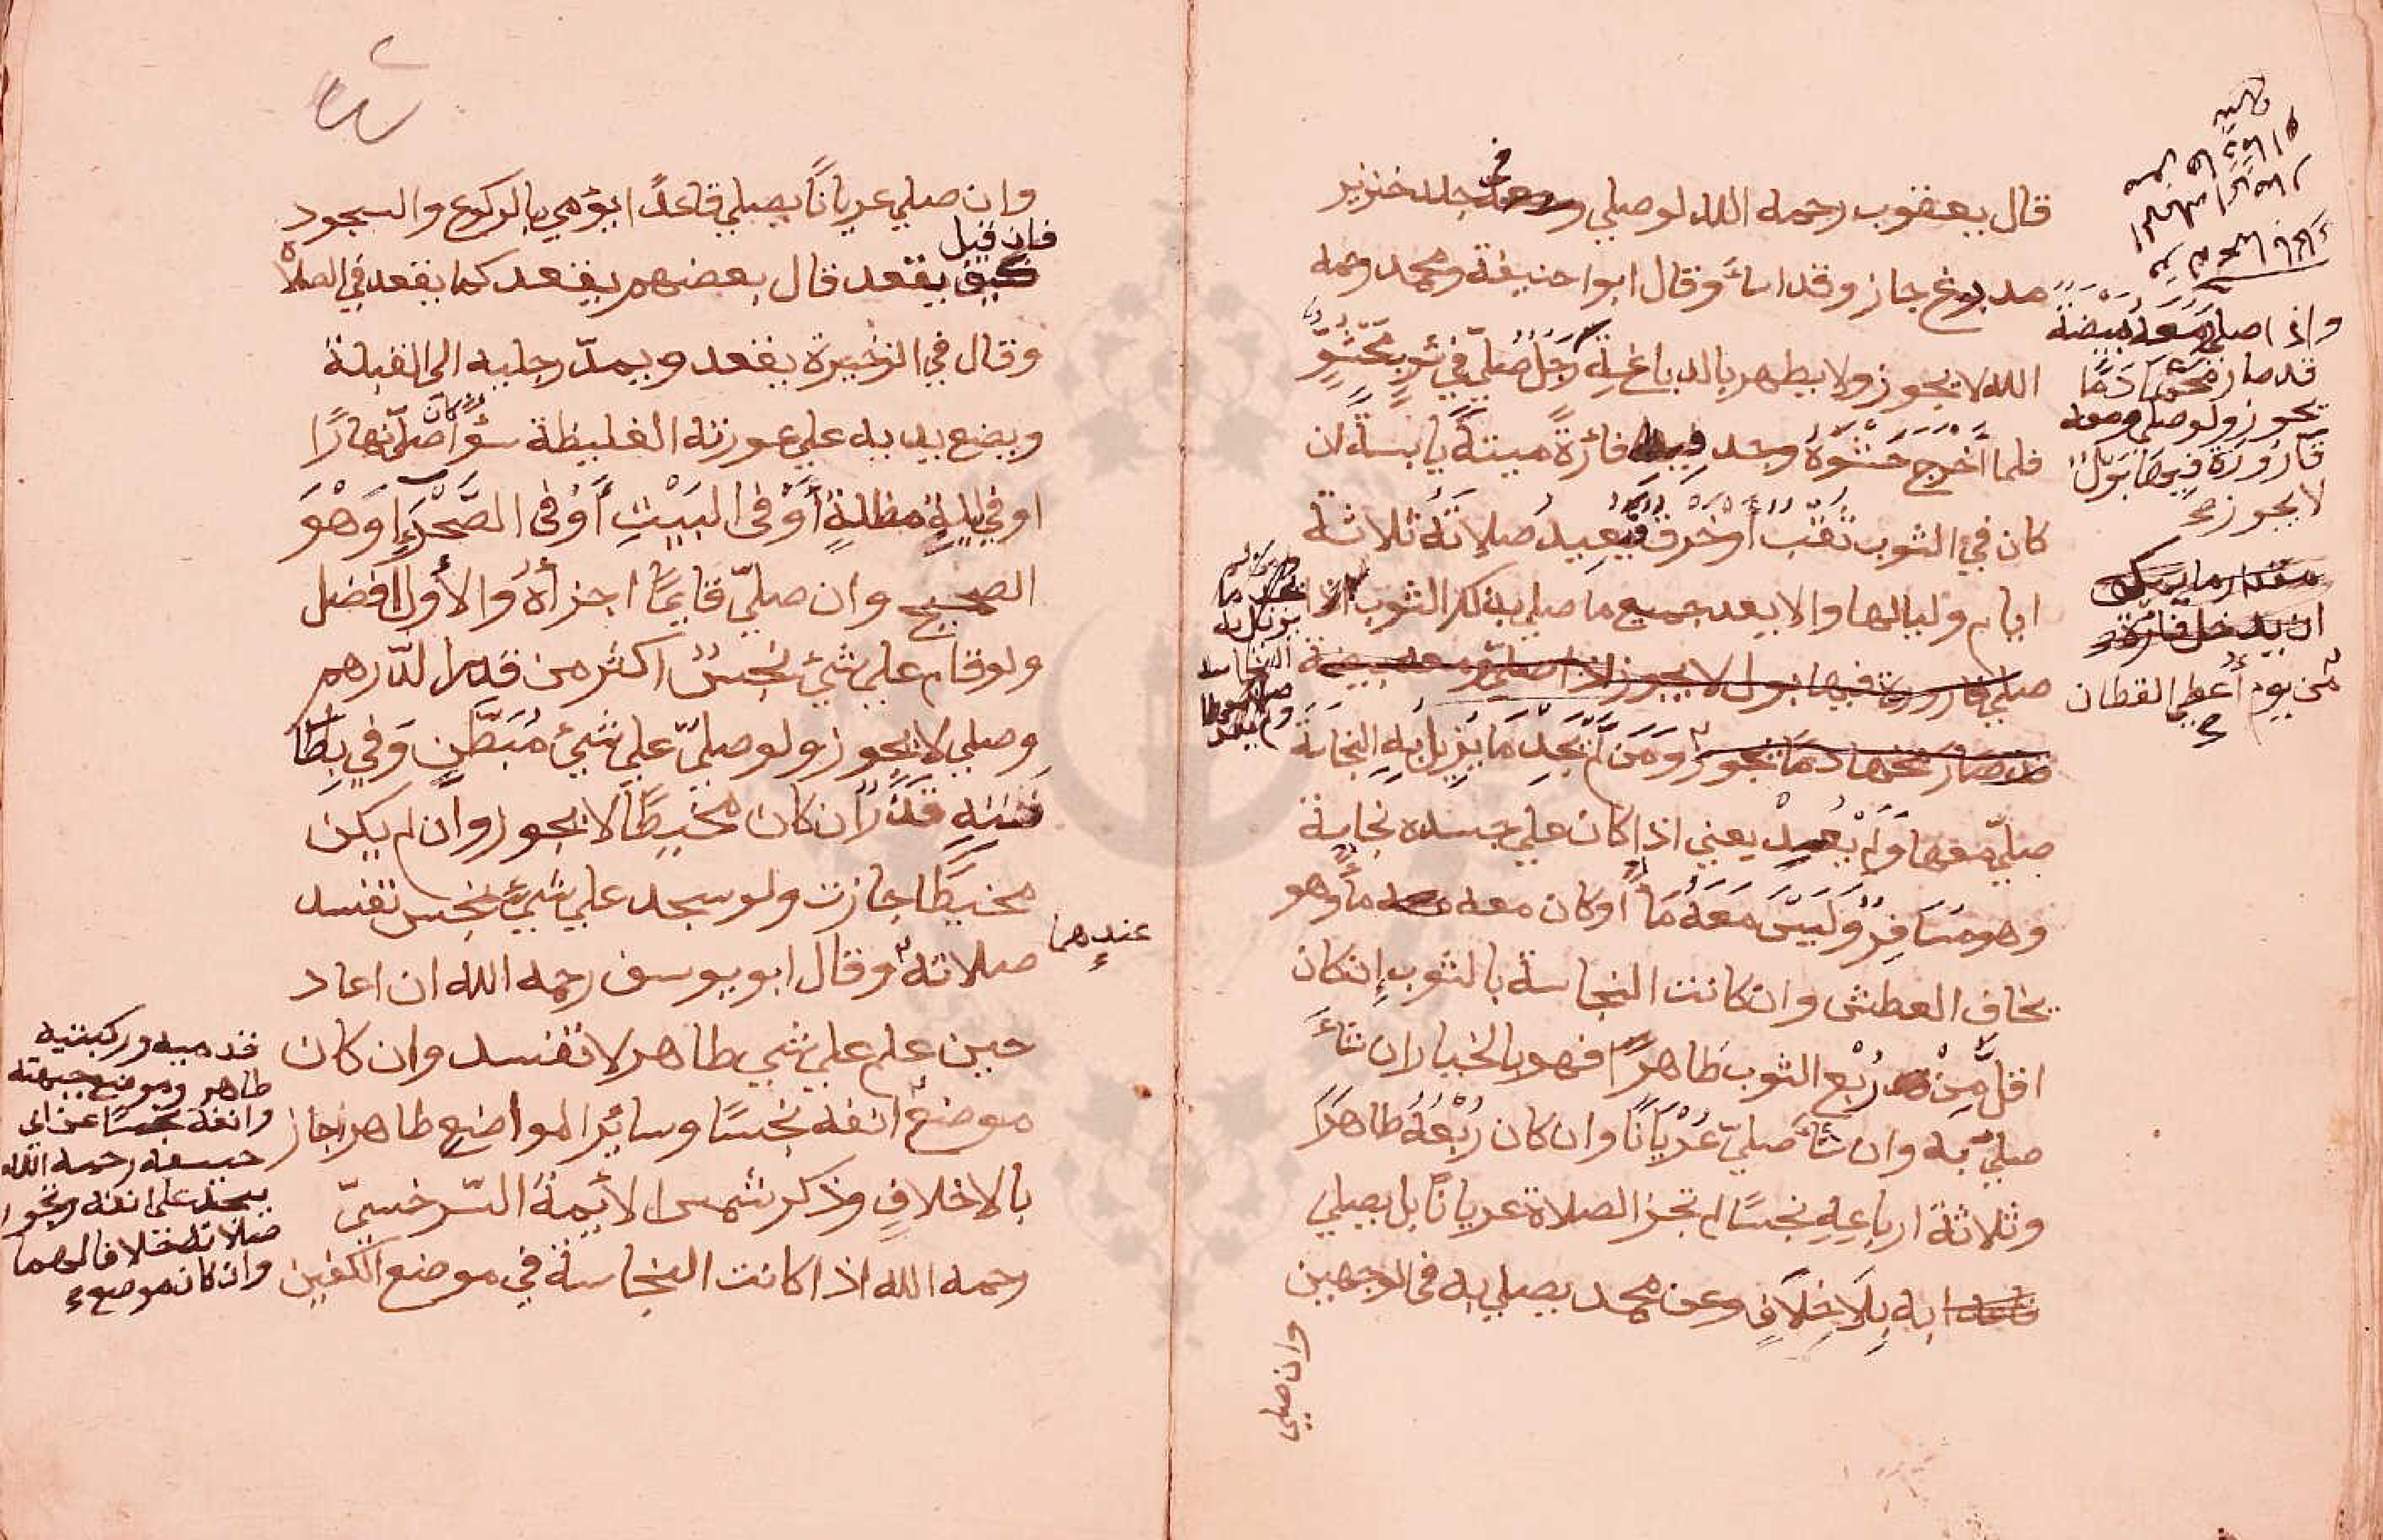 قال يعقوب رحمه الله لو صلي في جلد خنزير
مدبوغ جاز وقد اساء وقال ابوا حنيفة ومحمد رحمه
الله لا يجوز ولا يطهر بالدباغة رَجُلٌ صَلَّيٰ في ثوبٍ مَحْشُوٍّ
فلما اَخْرَجَ حَشْوَهُ وجد فيه فائرةً ميتةً يابسةً ان
كان في الثوب ثَقْبٌ أوخرق يُعِيدُ صلاتَهُ ثلاثة
ايام ولياليها والا يعد جميع ما صلي بذلك الثوب
صلي قارورة فيها بول لا يجوز اذا صلي ومعه بيضة
قد صار مخها دمًا يجوز وَمَن لَمْ يَجِدْ مَا يُزِيلُ بِهِ النجاسةَ
صلّي معها وَلَمْ يُعِدْ يعني اذا كان علي جسده نجاسة
وهو مُسَافِرٌ وَلَيْسَ مَعَهُ مَاءٌ أو كان معه ماءً وهو
يخاف العطش وان كانت النجاسة بالثوب إن كان
اقلُّ مِنْ رُبْعِ الثوب طاهرًا فهو بالخيار ان شاءَ
صلّي بِهِ وان شآءَ صَلّيٰ عُرْيَانًا وان كان رُبْعُهُ طاهرًا
وثلاثة ارباعِهِ نجسًا لم تجز الصلاة عريانًا بل يصلي
به بِلَا خِلَافٍ وعن محمد يصلي به في الوجهين
وان صلي
واذا صلي وَمَعَهُ بَيْضَةٌ
قد صار مُخُّهَا دَمًا
يجوز ولو صلي ومعه
قَارُورَةٌ فيهَا بَوْلٌ
لا يجوز صح
مقدار ما يمكن
ان يدخل فائرة
من يوم أعطي القطان
وان صلي عريانًا يصلي قاعدًا يؤمي بالركوع والسجود
فان قيل
كيف يقعد قال بعضهم يقعد كما يقعد في الصلاة
وقال في الذخيرة يقعد ويمدّ رجليه الي القبلة
ويضع يديه علي عورته الغليظة سَوَاءً كان صلّي نهارًا
او في ليلةٍ مظلمةٍ أَوْ في البَيْتِ أَوْ في الصَّحْرَاءِ وَهْوَ
الصحيح وان صلّي قايمًا اجزأهُ والأولُ افضل
ولو قام علي شئ نجسٌ اكثر من قدر الدّرهم
وصلي لا يجوز ولو صلّي علي شيئ مُبَطَّنٍ وَفي بِطَا
نَتِهِ قَذَرٌ ان كان مخيطًا لا يجوز وان لم يكن
مخيطًا جازت ولو سجد علي شيئ نجس تفسد
صلاته وقال ابو يوسف رحمه الله ان اعاد
عندهما
حين علم علي شي طاهر لا تفسد وان كان
موضع انفه نجسًا وسائر المواضع طاهر جاز
بالا خلافٍ وذكر شمس الأئمة السّرخسيّ
رحمه الله اذا كانت النجاسة في موضع الكفين
قدميه وركبتيه
طاهر وموضع جبهته
وانفه نجسًا عن ابي
حنيفة رحمه الله
يسجد علي انفه وتجوز
صلاته خلافا لهما
وان كان موضع